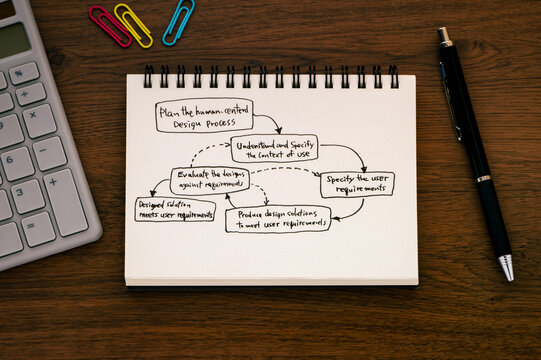 Plan the human-centered
Design process
Understand and Specify
the context of use
Evaluate the designs
against requirements
Specify the user
requirements
Designed solution
meets user requirements
Produce design solutions
to meet user requirements